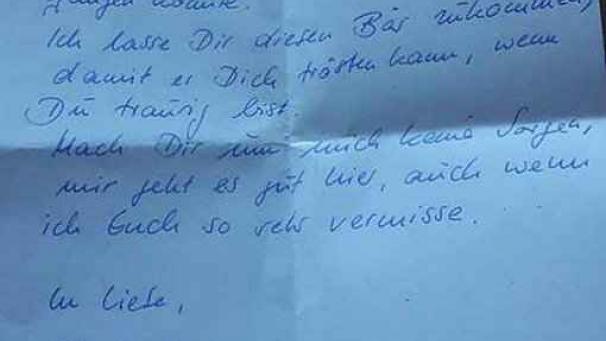 könnte.
Ich lasse Dir diesen Bär zukommen,
damit er Dich trösten kann, wenn
Du traurig bist.
Mach Dir um mich keine Sorgen,
mir geht es gut hier, auch wenn
ich Euch so sehr vermisse.
In Liebe,